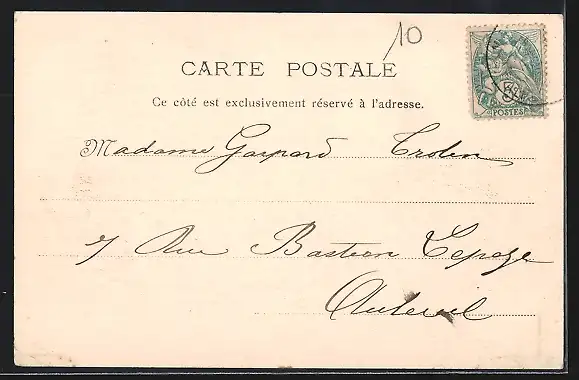 10
CARTE POSTALE
Ce côté est exclusivement réservé à l'adresse.
Madame Gaspard
7 Rue Bastien Lepage
Auteuil
5
POSTES